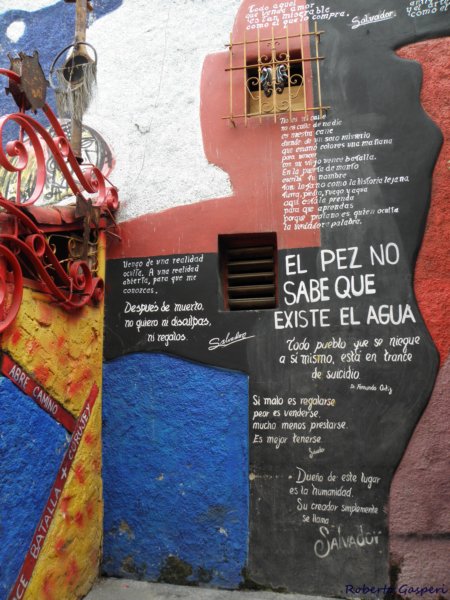 Todo aquel
que vende amor
es tan miserable
como el que lo compra.
Salvador.
No es mi calle
no es calle de nadie
es nuestra calle
donde de un solo misterio
que emanó colores una mañana
para vencer
con mi viejo batalla.
En la puerta de
escribí tu nombre
tan lejano como la historia lejana
tierra, piedra, fuego y agua
aquí está la prenda
para que aprendas
porque profano es quien oculta
la verdadera palabra.
Vengo de una realidad
oculta. A una realidad
abierta, para que me
conozcas.
Después de muerto.
no quiero ni disculpas,
ni regalos.
Salvador
EL PEZ NO
SABE QUE
EXISTE EL AGUA
Todo pueblo que se niegue
a sí mismo, está en trance
de suicidio.
Dr. Fernando Ortiz
Si malo es regalarse
peor es venderse.
mucho menos prestarse.
Es mejor tenerse.
Salvador
Dueño de este lugar
es la humanidad.
Su creador simplemente
se llama
SALVADOR
ABRE CAMINO
BATALLA + CURUJEY
Roberto Gasperi